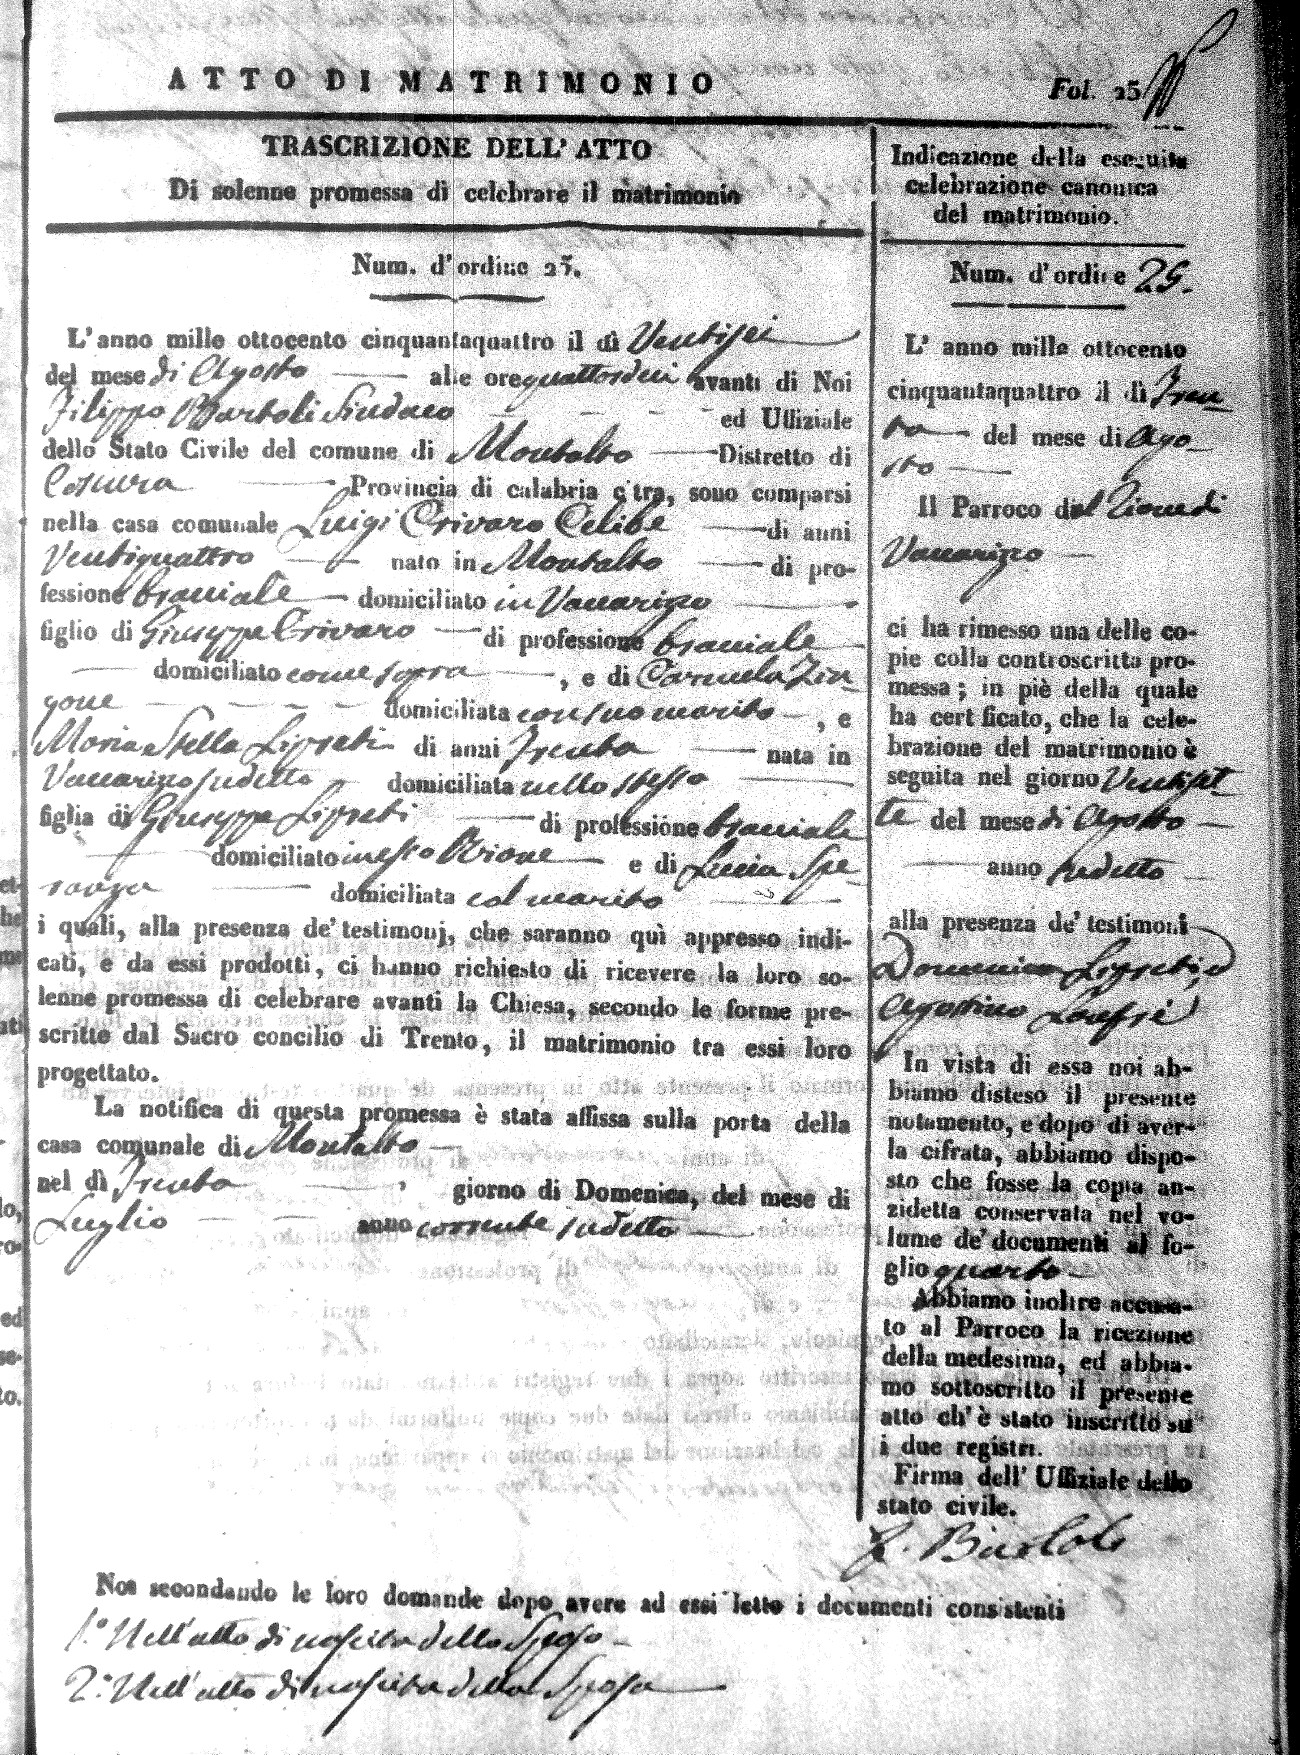 ATTO DI MATRIMONIO
Fol. 25
TRASCRIZIONE DELL' ATTO
Di solenne promessa di celebrare il matrimonio
Num. d' ordine 25.
L' anno mille ottocento cinquantaquattro il dì Ventisei
del mese di Agosto alle ore quattordici avanti di Noi
Filippo Bartoli Sindaco ed Uffiziale
dello Stato Civile del comune di Montalto Distretto di
Cosenza Provincia di calabria citra, sono comparsi
nella casa comunale Luigi Crivaro Celibe di anni
Ventiquattro nato in Montalto di pro-
fessione bracciale domiciliato in Vaccarizzo
figlio di Giuseppe Crivaro di professione bracciale
domiciliato come sopra , e di Carmela Zin
gone domiciliata con suo marito , e
Maria Stella Lipreti di anni Trenta nata in
Vaccarizzo sudetto domiciliata nello stesso
figlia di Giuseppe Lipreti di professione bracciale
domiciliato in esso Rione e di Lucia Spe
ranza domiciliata col marito
i quali, alla presenza de' testimonj, che saranno quì appresso indi-
cati, e da essi prodotti, ci hanno richiesto di ricevere la loro so-
lenne promessa di celebrare avanti la Chiesa, secondo le forme pre-
scritte dal Sacro concilio di Trento, il matrimonio tra essi loro
progettato.
La notifica di questa promessa è stata affissa sulla porta della
casa comunale di Montalto
nel dì Trenta , giorno di Domenica, del mese di
Luglio anno corrente sudetto
Indicazione della eseguita
celebrazione canonica
del matrimonio.
Num. d' ordine 25.
L' anno mille ottocento
cinquantaquattro il dì Tren
ta del mese di Ago
sto
Il Parroco del Rione di
Vaccarizzo
ci ha rimesso una delle co-
pie colla controscritta pro-
messa; in piè della quale
ha certificato, che la cele-
brazione del matrimonio è
seguita nel giorno Ventiset
te del mese di Agosto
anno sudetto
alla presenza de' testimoni
Domenico Lipreti, e
Agostino
In vista di essa noi ab-
biamo disteso il presente
notamento, e dopo di aver-
la cifrata, abbiamo dispo-
sto che fosse la copia an-
zidetta conservata nel vo-
lume de' documenti al fo-
glio quarto
Abbiamo inoltre accusa-
to al Parroco la ricezione
della medesima, ed abbia-
mo sottoscritto il presente
atto ch' è stato inscritto su
i due registri.
Firma dell' Uffiziale dello
stato civile.
F. Bartoli
Noi secondando le loro domande dopo avere ad essi letto i documenti consistenti
1.° Nell'atto di nascita dello Sposo
2.° Nell'atto di nascita della Sposa